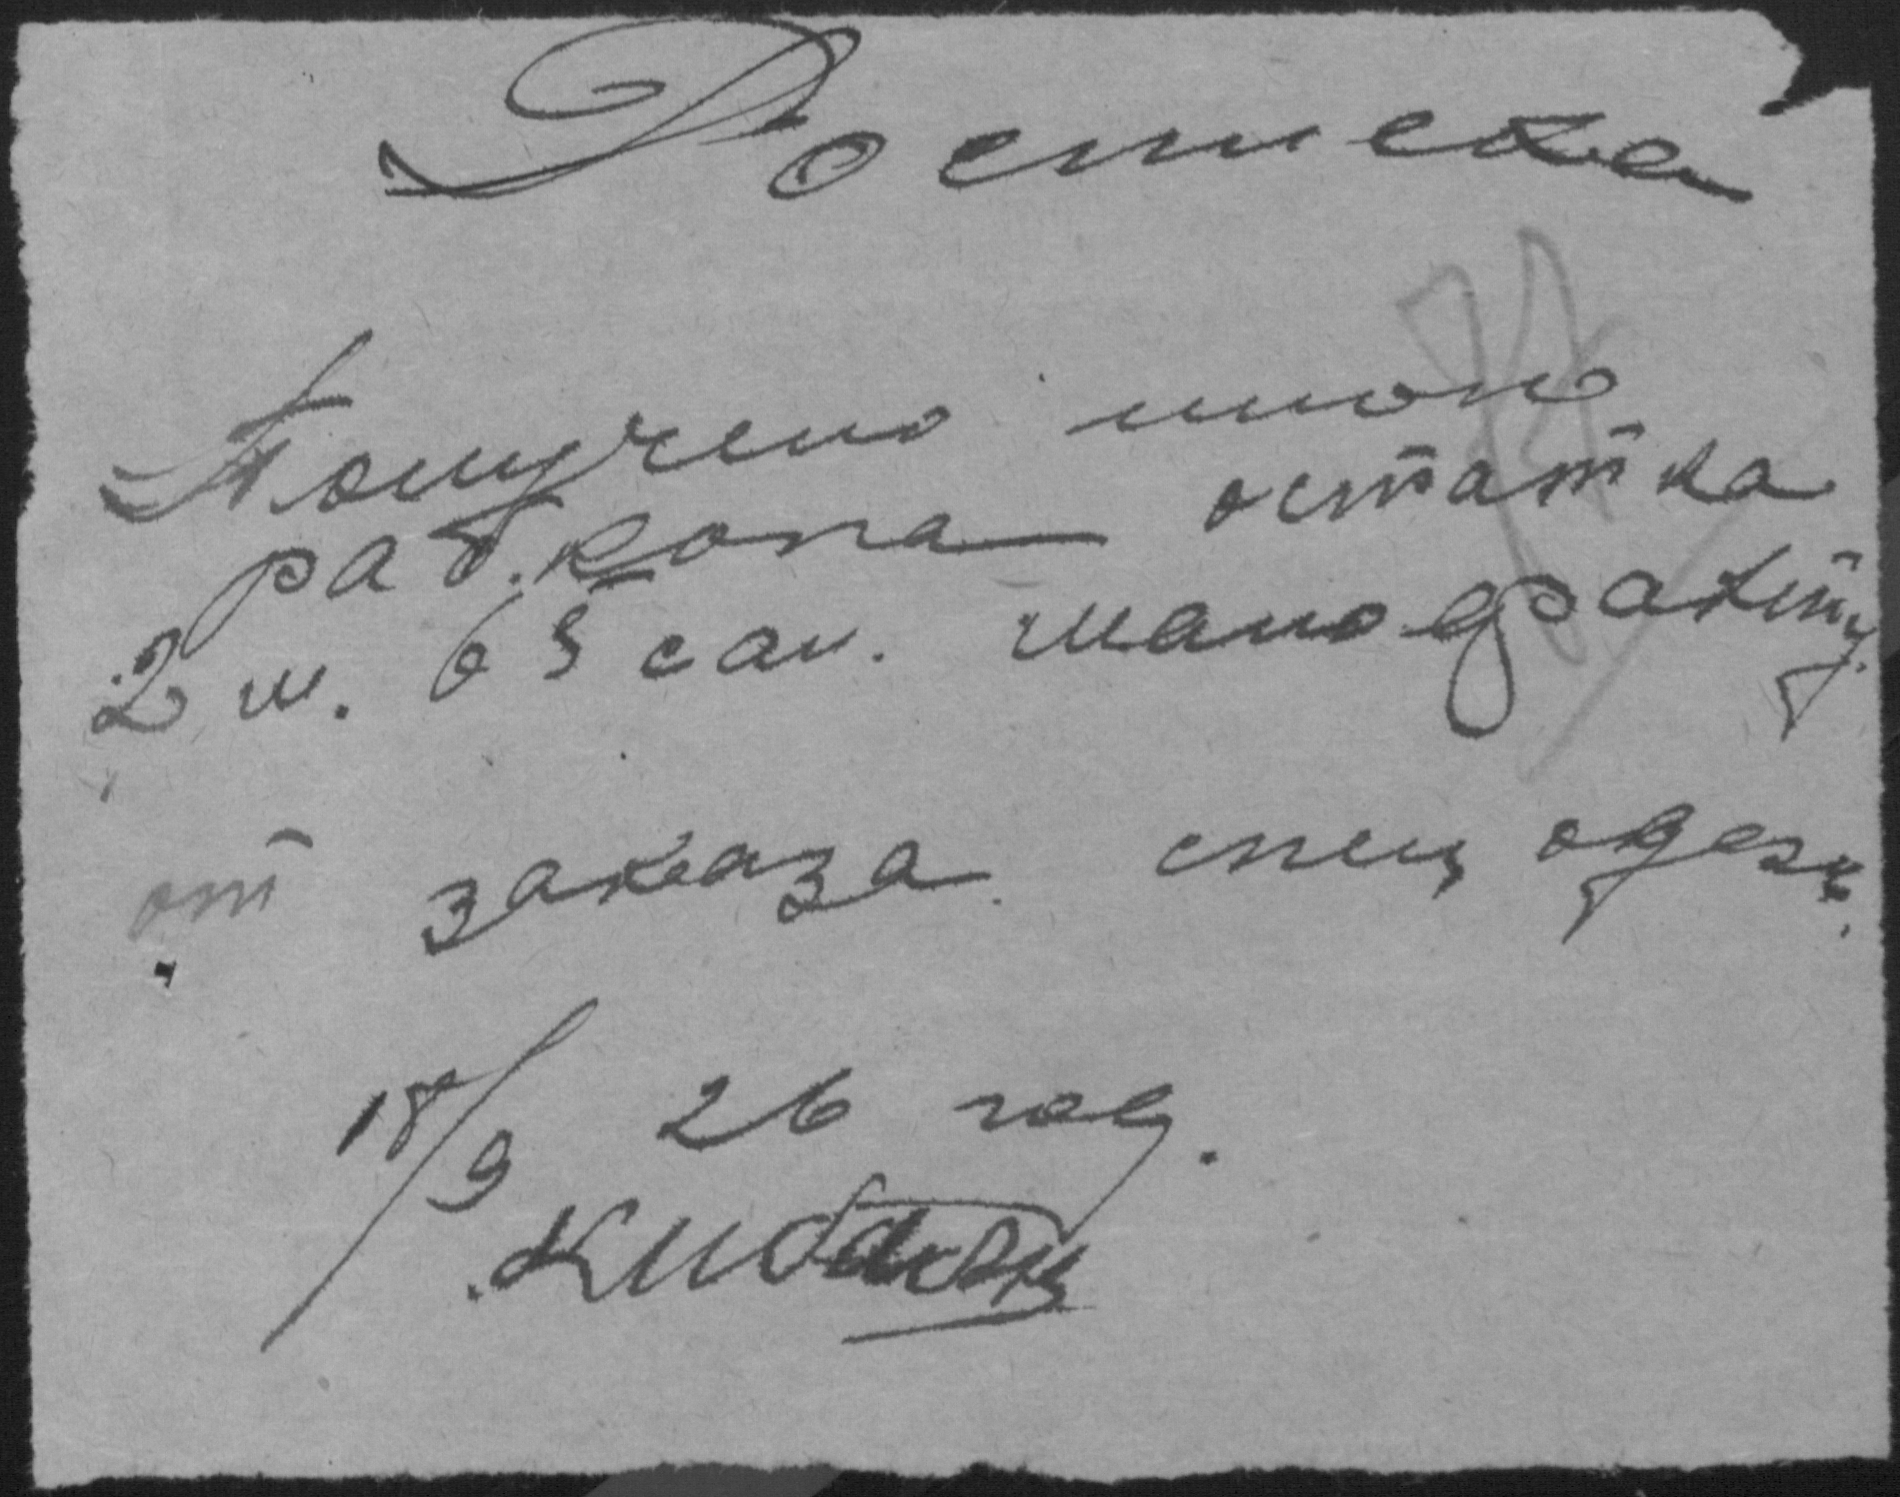 Росписка
Получено мною
раб.копа остатка
2 м. 65 сан. манофакту
от заказа спец одежд.
18/9 26 год.